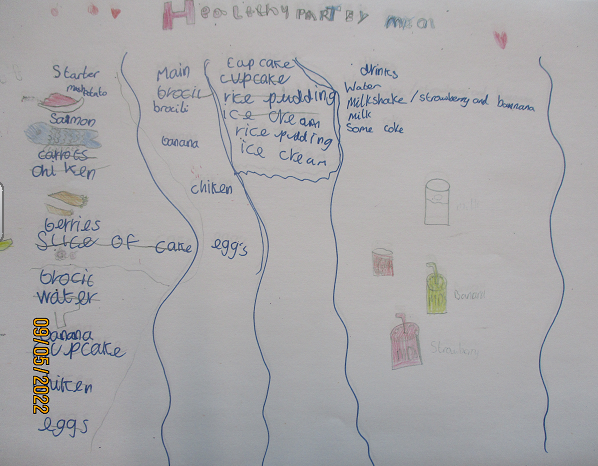 Heallthy PARTY BY
Starter
mashpotato
Salmon
carrots
chiken
berries
Slice OF cake
brocic
water
banana
cupcake
chiken
eggs
Main
brocic
brocili
banana
chiken
eggs
cupcake
cupcake
rice pudding
ice cream
rice pudding
ice cream
drinks
Water
Milkshake / strawberry and bannana
Milk
Some coke
Banana
09/05/2022